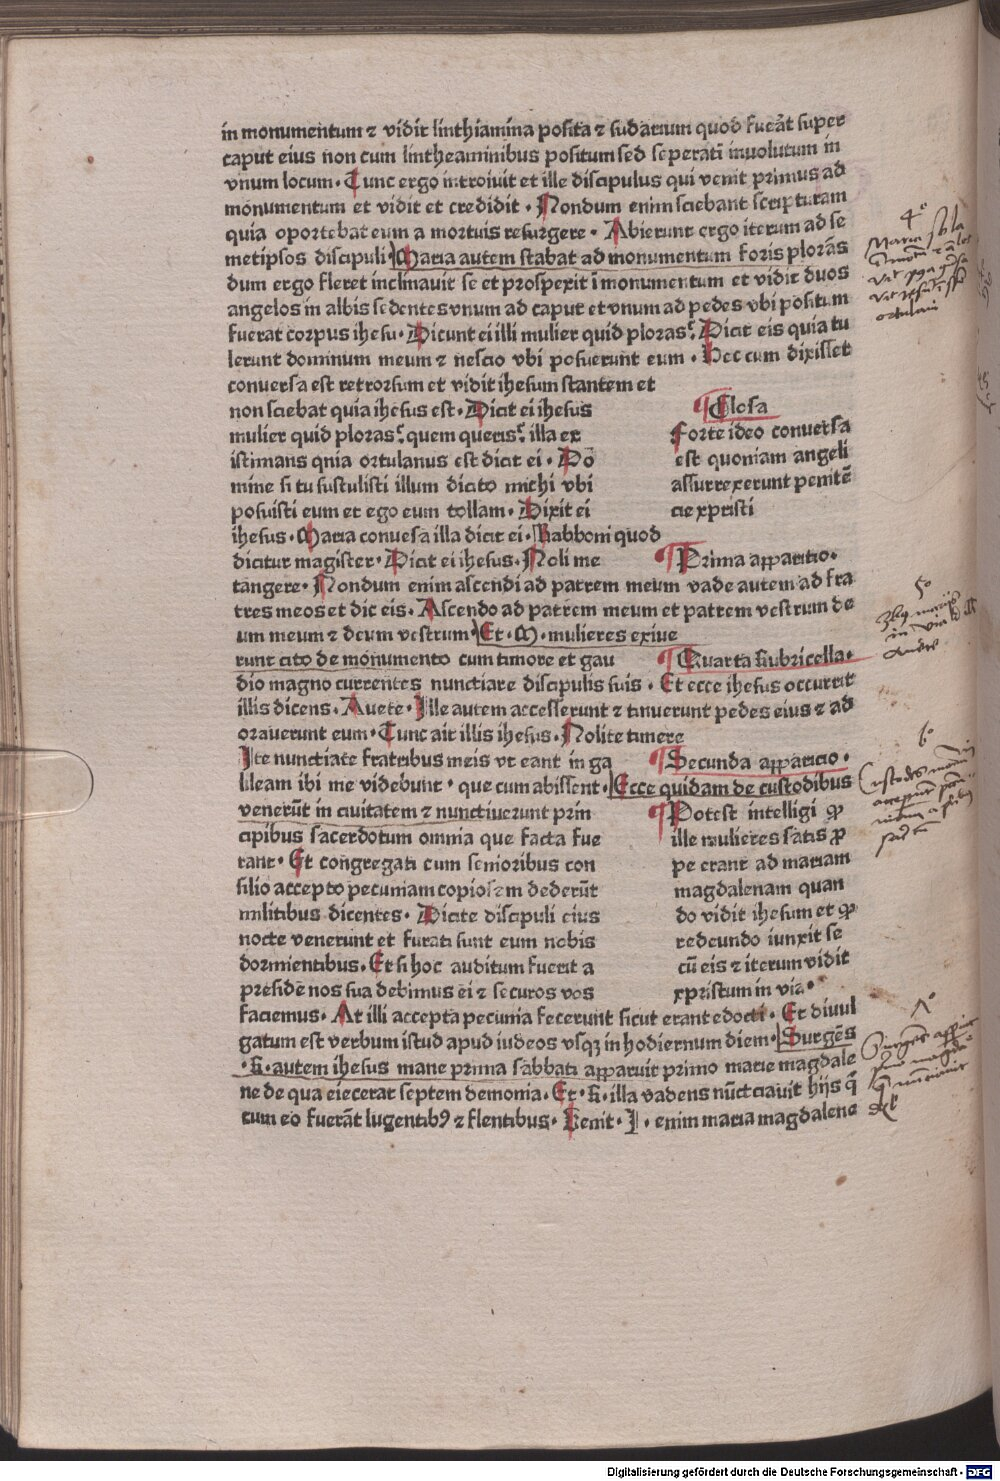 in monumentum ⁊ vidit linthiamina posita ⁊ sudarium quod fuẽat super
caput eius non cum lintheaminibus positum sed seperati inuolutum in
vnum locum · Tunc ergo introiuit et ille discipulus qui venit primus ad
monumentum et vidit et credidit · Nondum enim sciebant scripturam
quia oportebat eum a mortuis resurgere · Abierunt ergo iterum ad se
metipsos discipuli Maria autem stabat ad monumentum foris plorãs
dum ergo fleret inclinauit se et prospexit ĩ monumentum et vidit duos
angelos in albis sedentes vnum ad caput et vnum ad pedes vbi positum
fuerat corpus ihesu · Dicunt ei illi mulier quid ploras? Dicit eis quia tu
lerunt dominum meum ⁊ nescio vbi posuerunt eum · Hec cum dixisset
conuersa est retrorsum et vidit ihesum stantem et
non sciebat quia ihesus est · Dicit ei ihesus
mulier quid ploras? quem queris? illa ex
istimans qnia ortulanus est dicit ei · Dõ
mine si tu sustulisti illum dicito michi vbi
posuisti eum et ego eum tollam · Dixit ei
ihesus · Maria conuesa illa dicit ei · Rabboni quod
dicitur magister · Dicit ei ihesus · Noli me
¶ Glosa
Forte ideo conuersa
est quoniam angeli
assurrexerunt penitẽ
cie xpristi
¶ Prima apparitio ·
tangere · Nondum enim ascendi ad patrem meum vade autem ad fra
tres meos et dic eis · Ascendo ad patrem meum et patrem vestrum de
um meum ⁊ deum vestrum Et · M · mulieres exiue
runt cito de monumento cum timore et gau
¶ Quarta Rubricella ·
dio magno currentes nunctiare discipulis suis · Et ecce ihesus occurrit
illis dicens · Auete · Ille autem accesserunt ⁊ tinuerunt pedes eius ⁊ ad
orauerunt eum · Tunc ait illis ihesus · Nolite timere
Ite nunctiate fratribus meis vt eant in ga
¶ Secunda apparicio ·
lileam ibi me videbunt · que cum abissent · Ecce quidam de custodibus
venerũt in ciuitatem ⁊ nunctiuerunt prin
cipibus sacerdotum omnia que facta fue
rant · Et congregati cum senioribus con
silio accepto pecuniam copiosem dederũt
militibus dicentes · Dicite discipuli eius
nocte venerunt et furati sunt eum nobis
dormientibus · Et si hoc auditum fuerit a
preside nos sua debimus ei ⁊ securos vos
¶ Potest intelligi ꝙ
ille mulieres satis ꝓ
pe erant ad mariam
magdalenam quan
do vidit ihesum et ꝙ
redeundo iunxit se
cũ eis ⁊ iterum vidit
xpristum in via ·
faciemus · At illi accepta pecunia fecerunt sicut erant edocti · Et diuul
gatum est verbum istud apud iudeos vsqꝫ in hodiernum diem · Surgẽs
· R · autem ihesus mane prima sabbati apparuit primo marie magdale
ne de qua eiecerat septem demonia · Et · R · illa vadens nũctiauit hijs q̃
cum eo fuerãt lugentibꝰ ⁊ flentibus · Venit · I · enim maria magdalena
4º
Maria sola
ortulani
5º
in via
6º
Custodes
7º
Digitalisierung gefördert durch die Deutsche Forschungsgemeinschaft - DFG